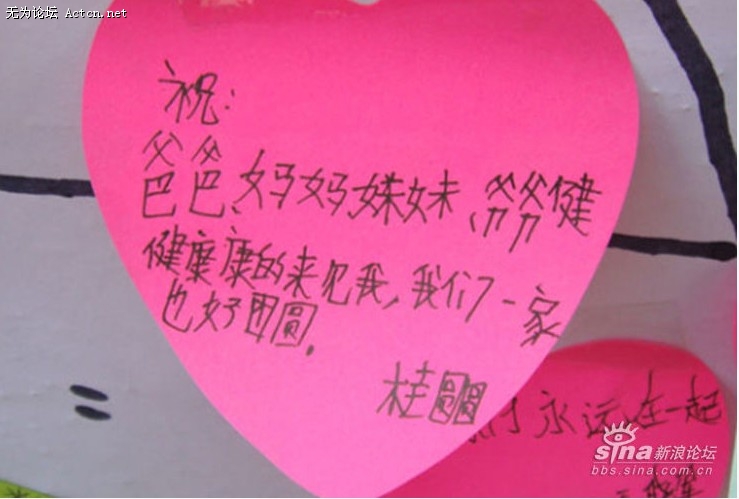 无为论坛 Actcn.net
祝:
爸爸、妈妈妹妹、爷爷健
健康康的来见我,我们一家
也好团圆.
桂圆圆
永远在一起
sina新浪论坛
bbs.sina.com.cn